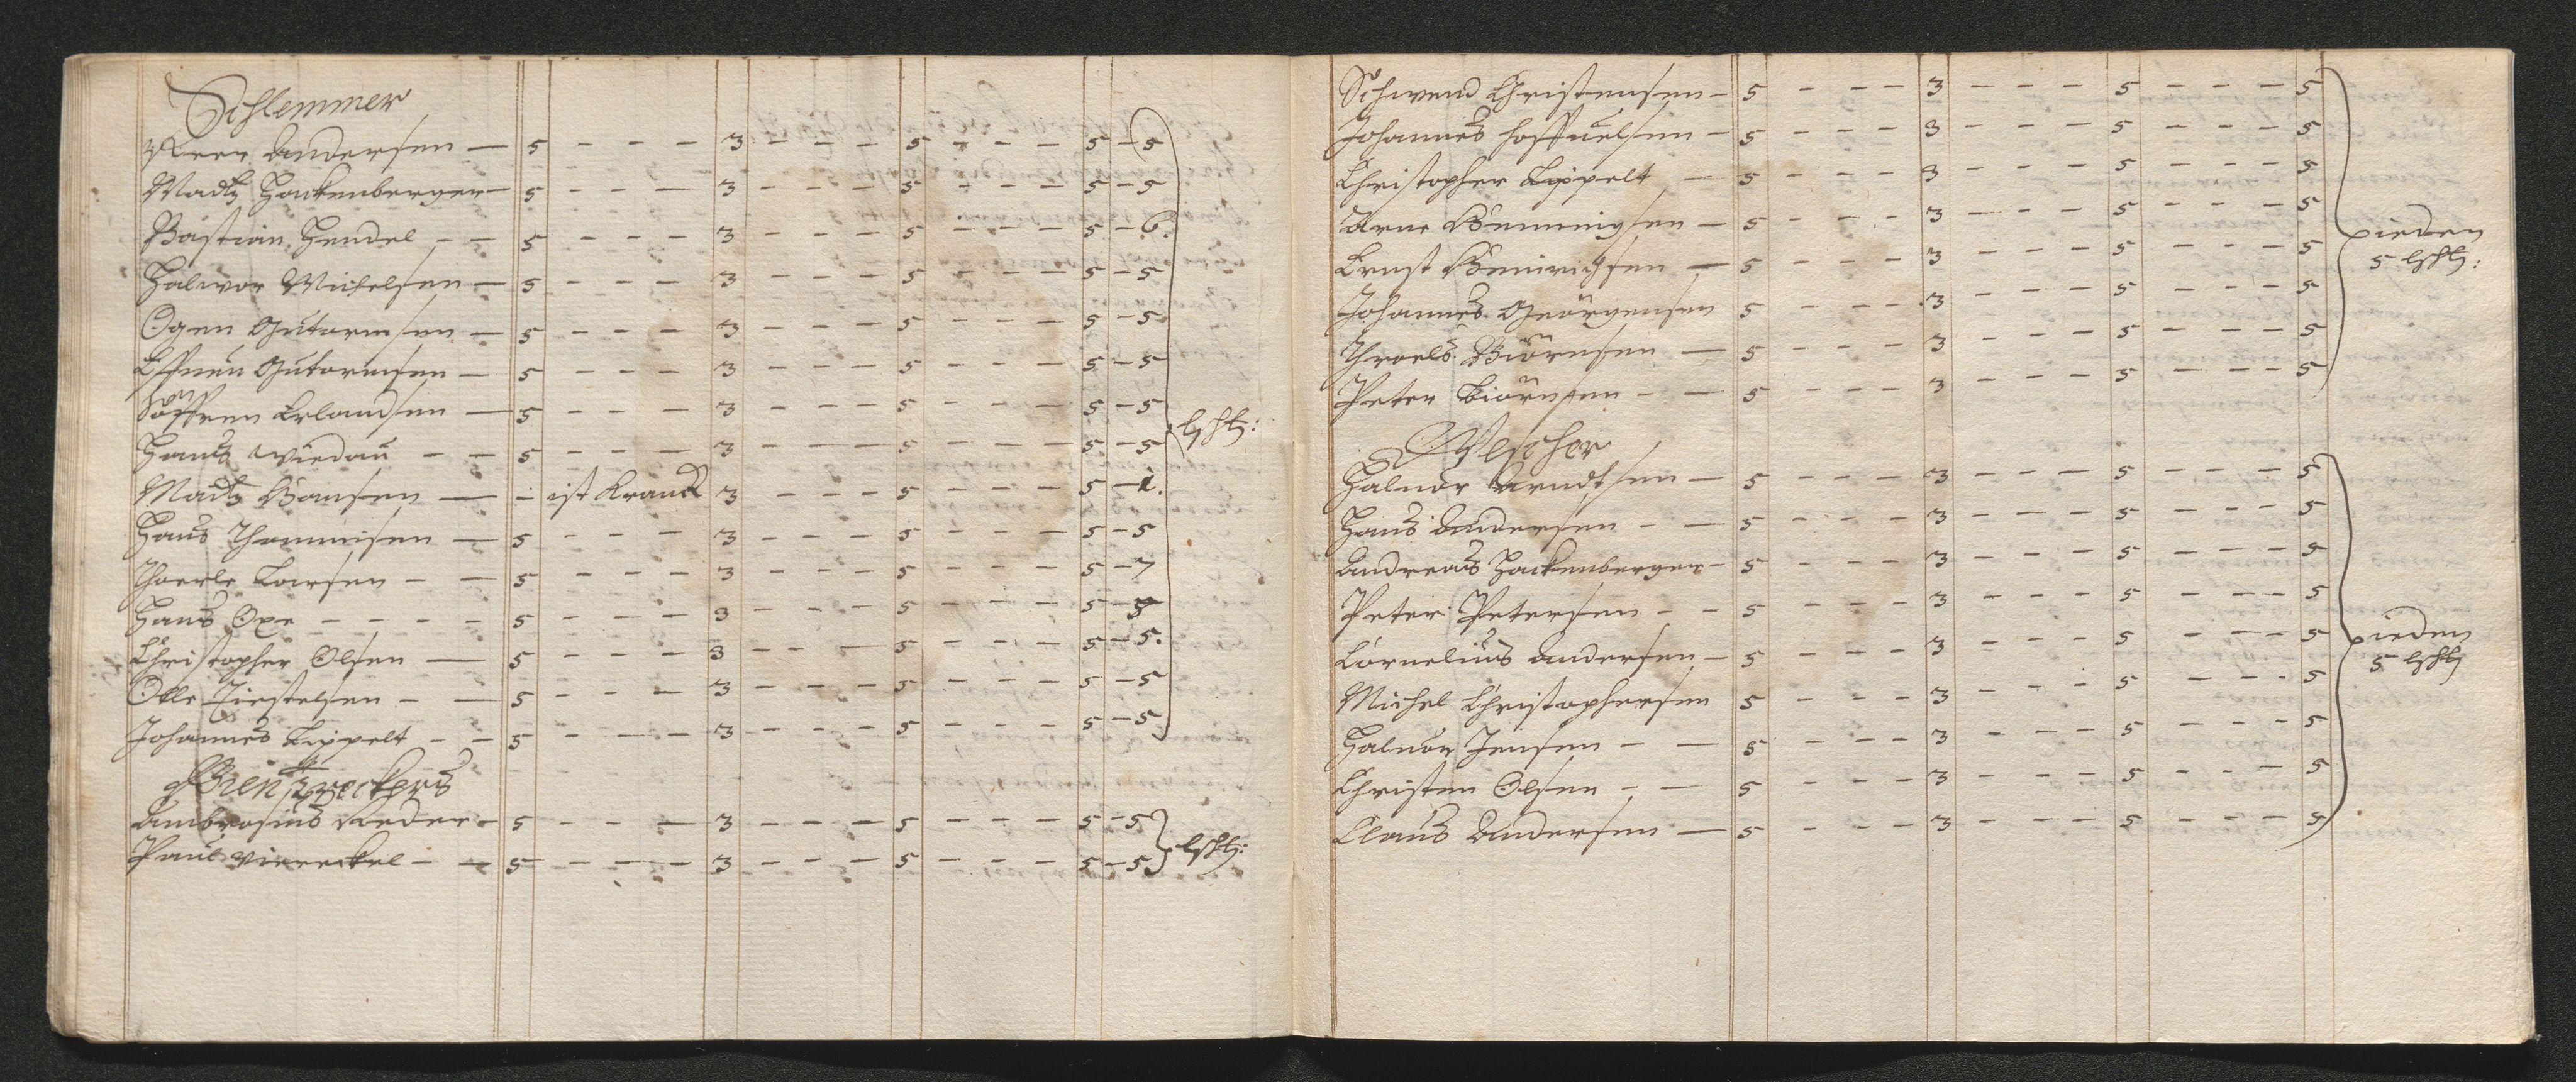 Schlemmer
Peer Andersen — 5 - - - 3 - - - 5 - - - 5 - 5
Madtz Hackenberger — 5 - - - 3 - - - 5 - - - 5 - 5
Bastian Hendel - - 5 - - - 3 - - - 5 - - - 5 - 6.
Halwor Michelsen — 5 - - - 3 - - - 5 - - - 5 - 5
Ogen Gutormsen — 5 - - - 3 - - - 5 - - - 5 - 5
Gutormsen — 5 - - - 3 - - - 5 - - - 5 - 5
Söffren Erlandsen — 5 - - - 3 - - - 5 - - - 5 - 5
lßhlz:
Hans Wiedau - - 5 - - - 3 - - - 5 - - - 5 - 5
Madtz Hansen — - ist Kranck 3 - - - 5 - - - 5 - 1.
Hans Thommisen — 5 - - - 3 - - - 5 - - - 5 - 5
Thoerle Larsen - - 5 - - - 3 - - - 5 - - - 5 - 7
Hans Oxe - - - - 5 - - - 3 - - - 5 - - - 5 - 5
Christopher Olsen — 5 - - - 3 - - - 5 - - - 5 - 5.
Olle Tiestelsen - - 5 - - - 3 - - - 5 - - - 5 - 5
Johannes Lippelt - - 5 - - - 3 - - - 5 - - - 5 - 5
Ambrosius Reder - 5 - - - 3 - - - 5 - - - 5 - 5
Paul Viereckel - - 5 - - - 3 - - - 5 - - - 5 - 5
Schwend Christensen - 5 - - - 3 - - - 5 - - - 5
Johannes - 5 - - - 3 - - - 5 - - - 5
Christopher Lippelt - 5 - - - 3 - - - 5 - - - 5
Arne Hemmingsen — 5 - - - 3 - - - 5 - - - 5
ieden
Ernst Heinrichsen — 5 - - - 3 - - - 5 - - - 5
5
Johannes Geörgensen 5 - - - 3 - - - 5 - - - 5
Throels Biörnsen — 5 - - - 3 - - - 5 - - - 5
Peter Biörnsen - - 5 - - - 3 - - - 5 - - - 5
Halvor Arndtsen — 5 - - - 3 - - - 5 - - - 5
Hans Andersen - - 5 - - - 3 - - - 5 - - - 5
Andreas Hackenberger - 5 - - - 3 - - - 5 - - - 5
Peter Petersen - - 5 - - - 3 - - - 5 - - - 5
ieden
Cornelius Andersen - 5 - - - 3 - - - 5 - - - 5
5
Michel Christophersen 5 - - - 3 - - - 5 - - - 5
Halvor Jensen - - 5 - - - 3 - - - 5 - - - 5
Christen Olsen - - 5 - - - 3 - - - 5 - - - 5
Claus Andersen — 5 - - - 3 - - - 5 - - - 5